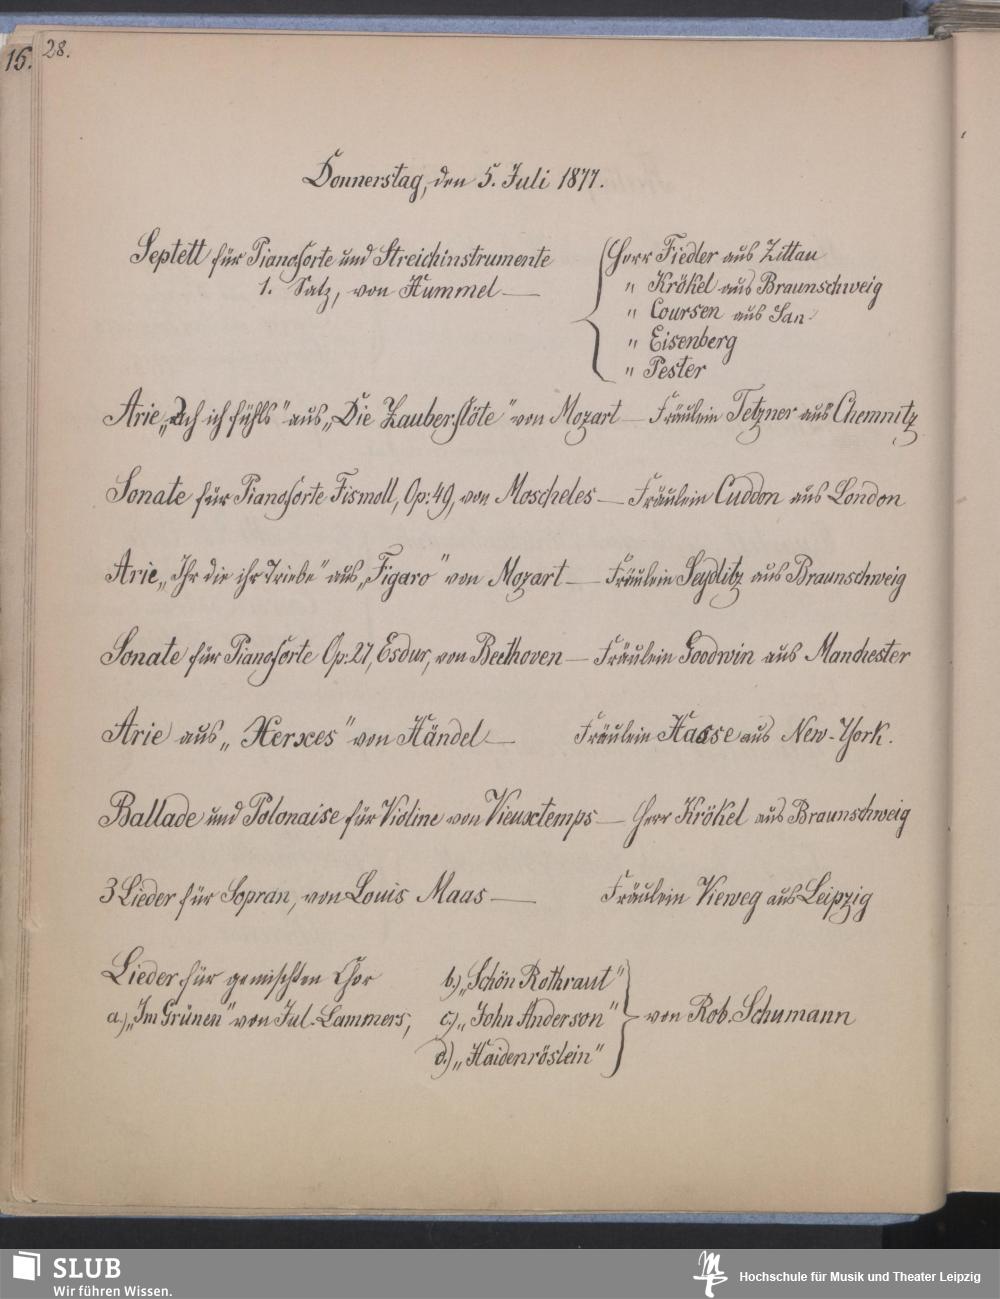 15.
28.
Donnerstag, den 5. Juli 1877.
Septett für Pianoforte und Streichinstrumente
1. Satz, von Hummel —
Herr Fiedler aus Zittau
" Krökel aus Braunschweig
" Coursen aus San
" Eisenberg
" Pester
Arie „Ach ich fühls" aus „Die Zauberflöte" von Mozart — Fräulein Tetzner aus Chemnitz
Sonate für Pianoforte Fismoll, Op: 49, von Moscheles — Fräulein Cuddon aus London
Arie „Ihr die ihr Triebe" aus „Figaro" von Mozart — Fräulein Seydlitz aus Braunschweig
Sonate für Pianoforte Op: 27, Esdur, von Beethoven — Fräulein Goodwin aus Manchester
Arie aus „Xerxes" von Händel — Fräulein Hasse aus New-York.
Ballade und Polonaise für Violine von Vieuxtemps — Herr Krökel aus Braunschweig
3 Lieder für Sopran, von Louis Maas — Fräulein Vieweg aus Leipzig
Lieder für gemischten Chor
a.) „Im Grünen" von Jul. Lammers,
b.) „Schön Rothraut"
c.) „John Anderson"
d.) „Haidenröslein"
von Rob. Schumann
SLUB
Wir führen Wissen.
Hochschule für Musik und Theater Leipzig